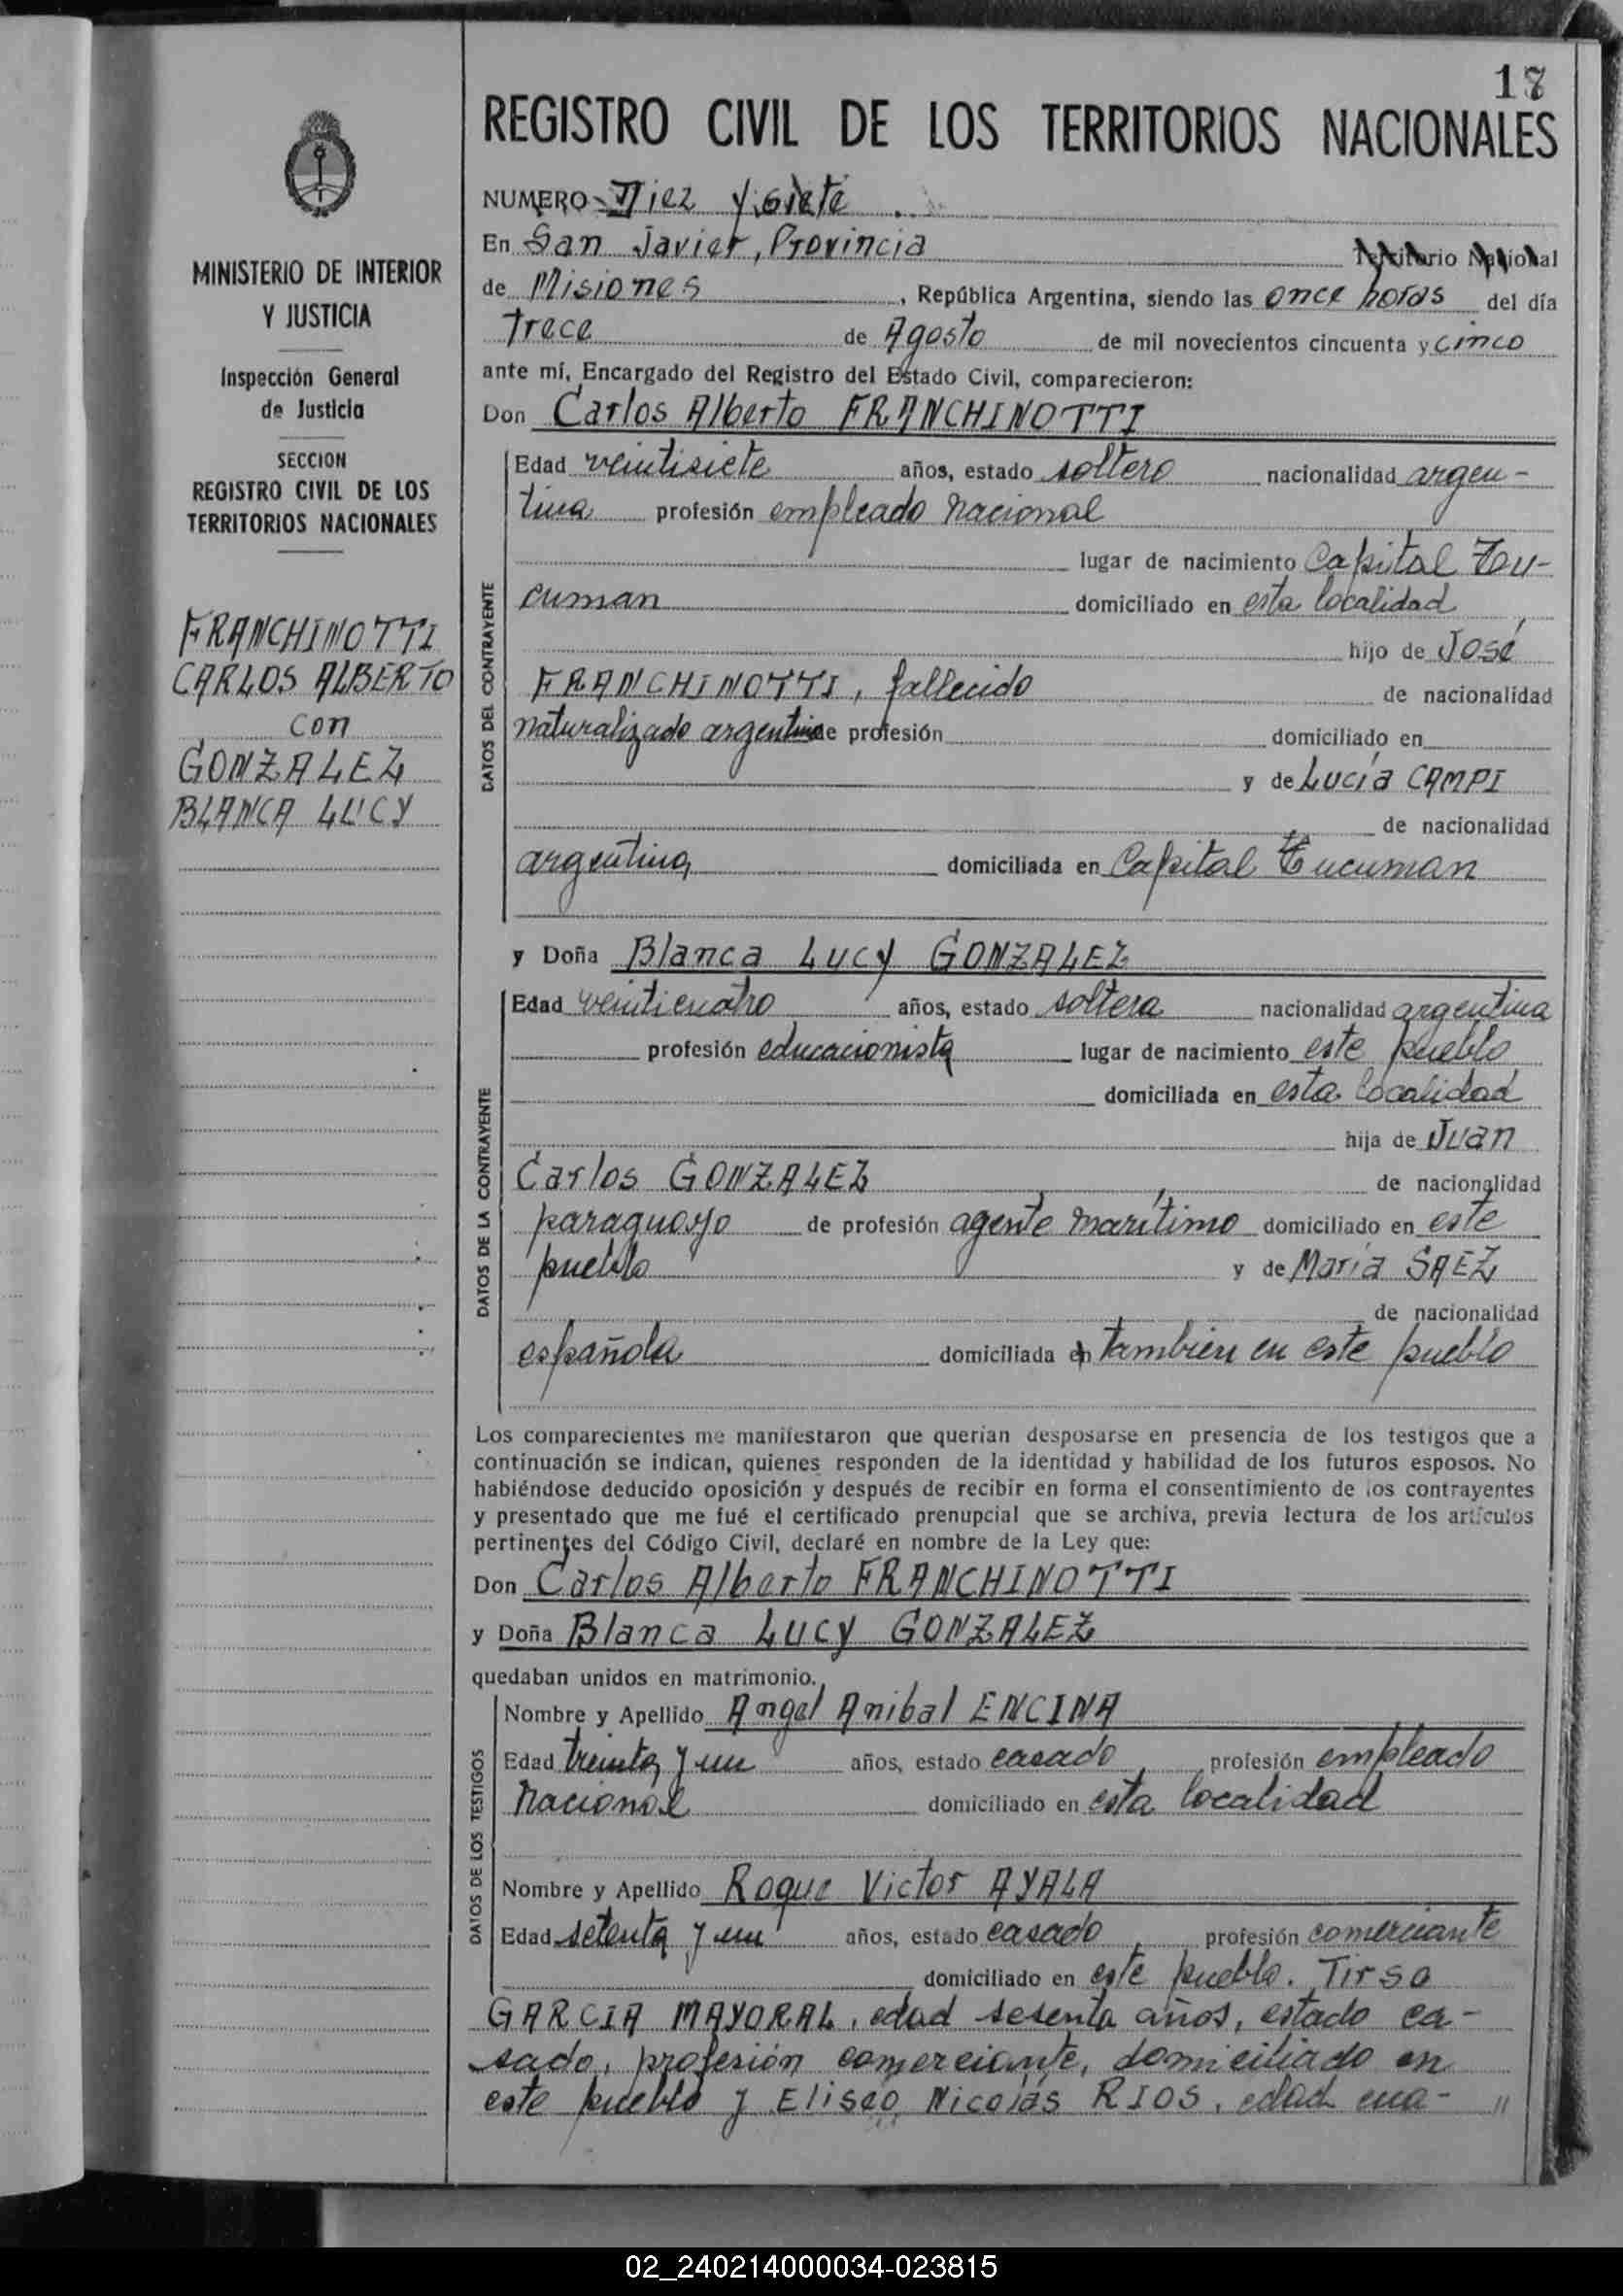 17
REGISTRO CIVIL DE LOS TERRITORIOS NACIONALES
MINISTERIO DE INTERIOR
Y JUSTICIA
Inspección General
de Justicia
SECCION
REGISTRO CIVIL DE LOS
TERRITORIOS NACIONALES
FRANCHINOTTI
CARLOS ALBERTO
con
GONZALEZ
BLANCA LUCY
NUMERO Diez y siete
En San Javier, Provincia Territorio Nacional
de Misiones, República Argentina, siendo las once horas del día
trece de Agosto de mil novecientos cincuenta y cinco
ante mí, Encargado del Registro del Estado Civil, comparecieron:
Don Carlos Alberto FRANCHINOTTI
DATOS DEL CONTRAYENTE
Edad veintisiete años, estado soltero nacionalidad argen-
tina profesión empleado nacional
lugar de nacimiento Capital Tu-
cuman domiciliado en esta localidad
hijo de José
FRANCHINOTTI, fallecido de nacionalidad
naturalizado argentino de profesión domiciliado en
y de Lucía CAMPI
de nacionalidad
argentina domiciliada en Capital Tucuman
y Doña Blanca Lucy GONZALEZ
DATOS DE LA CONTRAYENTE
Edad veinticuatro años, estado soltera nacionalidad argentina
profesión educacionista lugar de nacimiento este pueblo
domiciliada en esta localidad
hija de Juan
Carlos GONZALEZ de nacionalidad
paraguayo de profesión agente marítimo domiciliado en este
pueblo y de María SAEZ
de nacionalidad
española domiciliada en tambien en este pueblo
Los comparecientes me manifestaron que querían desposarse en presencia de los testigos que a
continuación se indican, quienes responden de la identidad y habilidad de los futuros esposos. No
habiéndose deducido oposición y después de recibir en forma el consentimiento de los contrayentes
y presentado que me fué el certificado prenupcial que se archiva, previa lectura de los artículos
pertinentes del Código Civil, declaré en nombre de la Ley que:
Don Carlos Alberto FRANCHINOTTI
y Doña Blanca Lucy GONZALEZ
quedaban unidos en matrimonio.
DATOS DE LOS TESTIGOS
Nombre y Apellido Angel Anibal ENCINA
Edad treinta y un años, estado casado profesión empleado
nacional domiciliado en esta localidad
Nombre y Apellido Roque Victor AYALA
Edad setenta y un años, estado casado profesión comerciante
domiciliado en este pueblo. Tirso
GARCIA MAYORAL, edad sesenta años, estado ca-
sado, profesión comerciante, domiciliado en
este pueblo y Eliseo Nicolás RIOS, edad cua- "
02_240214000034-023815